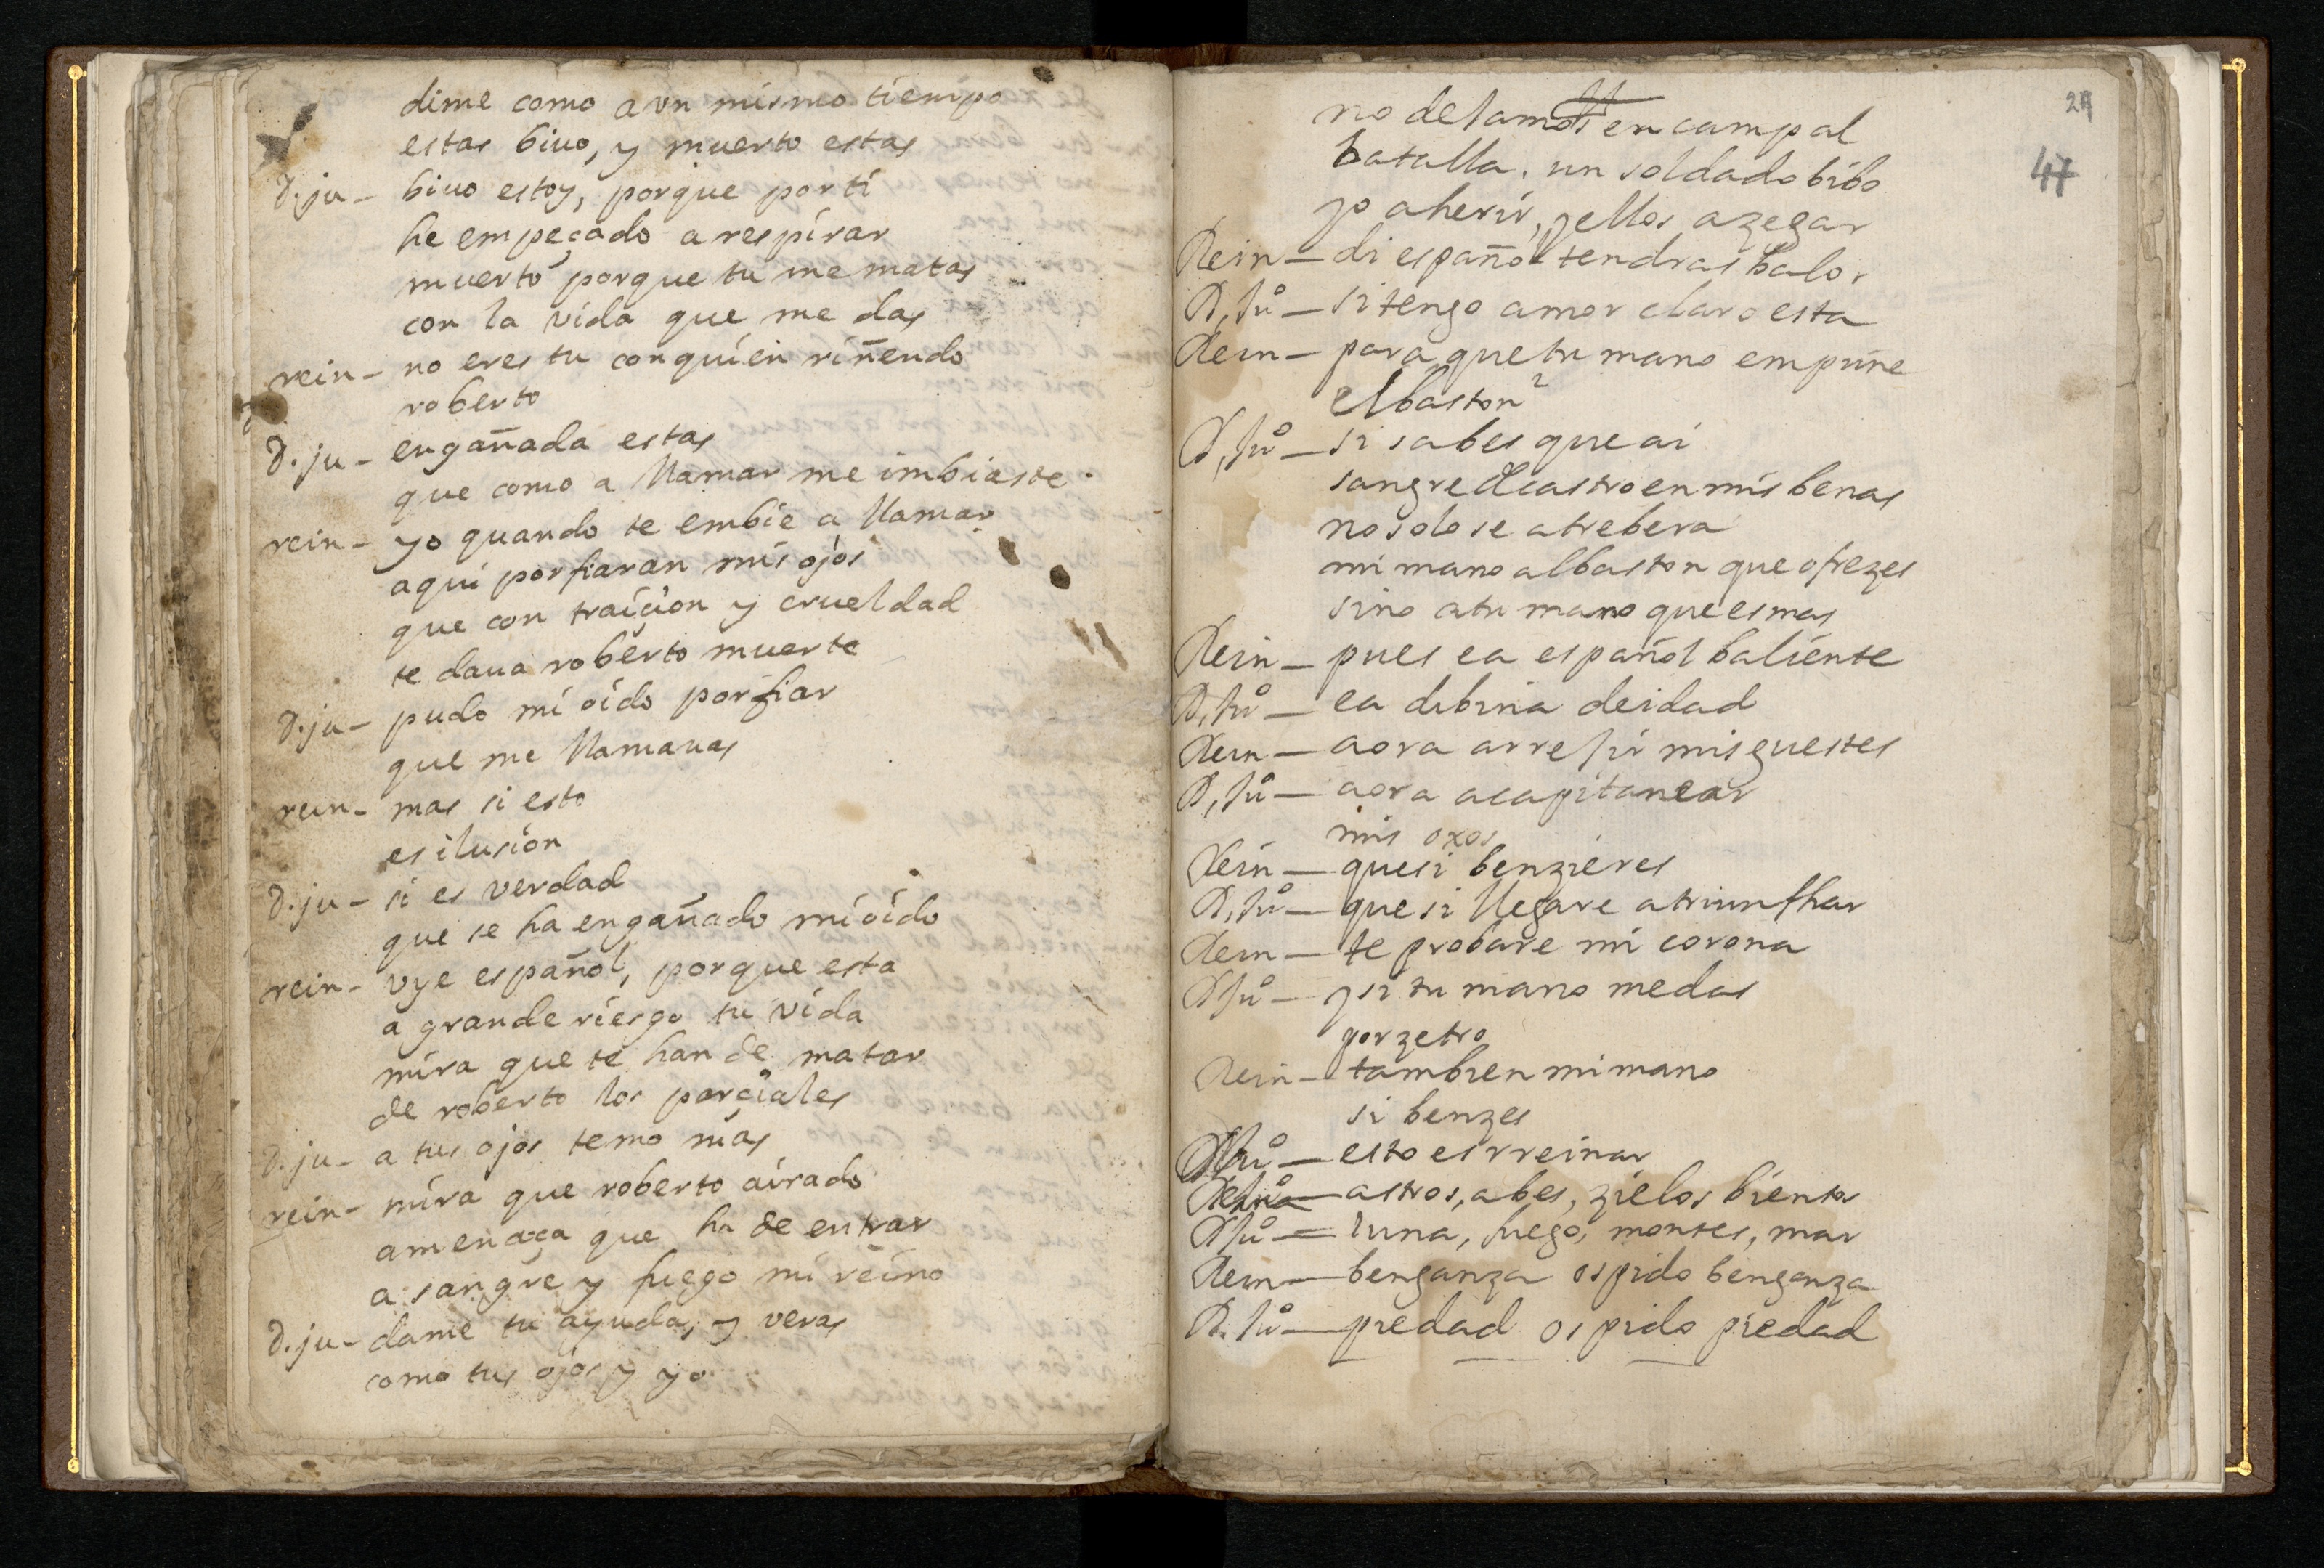 dime como a vn mismo tiempo
estas biuo, y muerto estas
D. ju - biuo estoy, porque por ti
he empeçado a respirar
muerto porque tu me matas
con la vida que me das
rein - no eres tu con quien riñendo
roberto
D. ju - engañada estas
que como a llamar me imbiaste
rein - yo quando te embie a llamar
aqui porfiaran mis ojos
que con traiçion y crueldad
te daua roberto muerte
D. ju - pudo mi oido porfiar
que me llamauas
rein - mas si esto
es ilusion
D. ju - si es verdad
que se ha engañado mi oido
rein - vye español, porque esta
a grande riesgo tu vida
mira que te han de matar
de roberto los parçiales
D. ju - a tus ojos temo mas
rein - mira que roberto airado
amenaça que ha de entrar
a sangre y fuego mi reino
D. ju - dame tu ayuda, y veras
como tus ojos y yo
29
no dejamos en campal
47
batalla, un soldado bibo
yo a herir, y ellos a zegar
Rein - di español tendras balor
D, Ju - si tengo amor claro esta
Rein - para que tu mano empuñe
el baston
D, Ju - si sabes que ai
sangre de castro en mis benas
no solo se atrebera
mi mano al baston que ofrezes
sino a tu mano que es mas
Rein - pues ea español baliente
D, Ju - ea dibina deidad
Rein - aora a rrejir mis guestes
D, Ju - aora a capitanear
mis oxos
Rein - que si benzieres
D, Ju - que si llegare a triunfhar
Rein - te probare mi corona
D Ju - y si tu mano me das
por zetro
Rein - tambien mi mano
si benzes
D Ju - esto es rreinar
Reina - astros, abes, zielos bientos
D Ju - luna, fuego, montes, mar
Rein - benganza os pido benganza
D. Ju - piedad os pido piedad